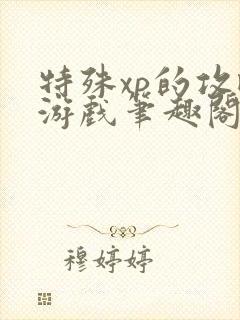 特殊xp的攻
游戏笔趣阁
穆婷婷